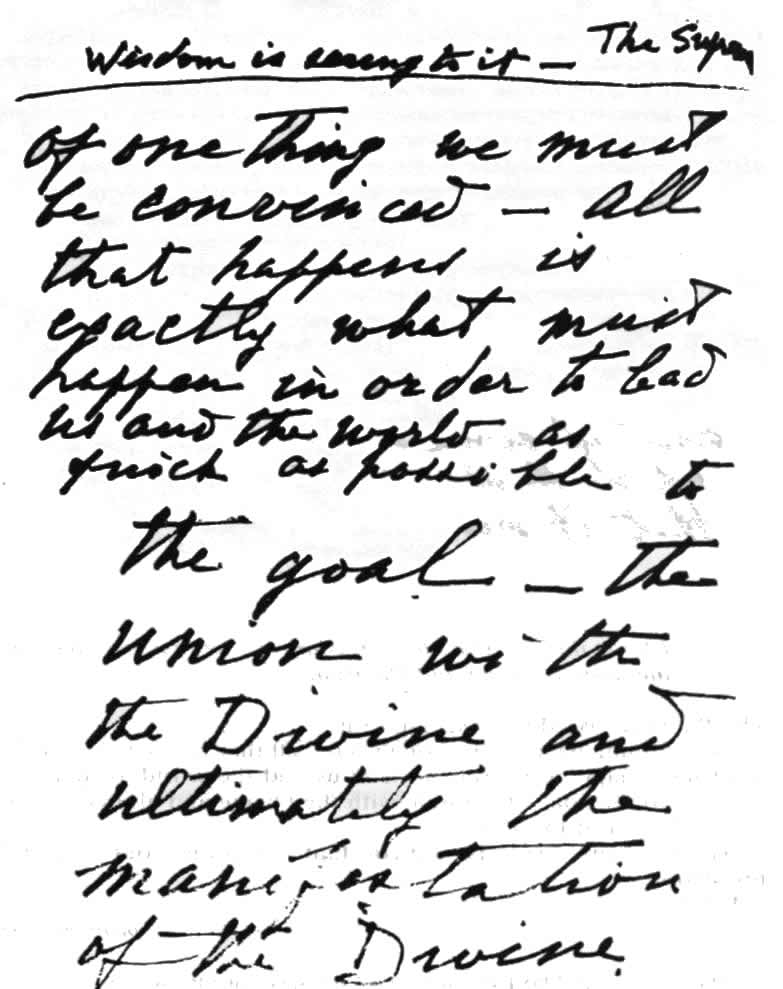 The Suprem
Wisdom is seeing to it —
of one thing we must
be convinced — all
that happens is
exactly what must
happen in order to lead
us and the world as
quick as possible to
the goal — the
union with
the Divine and
ultimately the
manifestation
of the Divine.